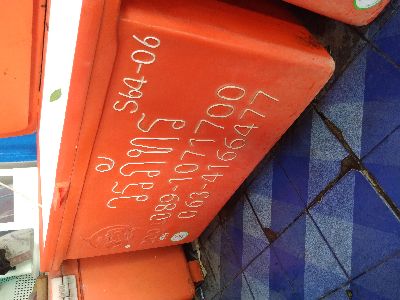 วรภัทร
S64-06
089-1071700
063-4166477